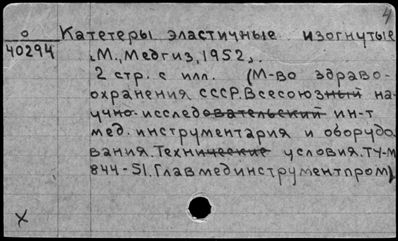 4
о Катетеры эластичные изогнутые
40294 М., Медгиз, 1952.
2 стр. с илл. (М-во здраво-
охранения СССР. Всесоюзный на-
учно-исследовательский ин-т
мед. инструментария и оборудо
вания. Технические условия. ТУ-М
844-51. Главмединструментпром)
X